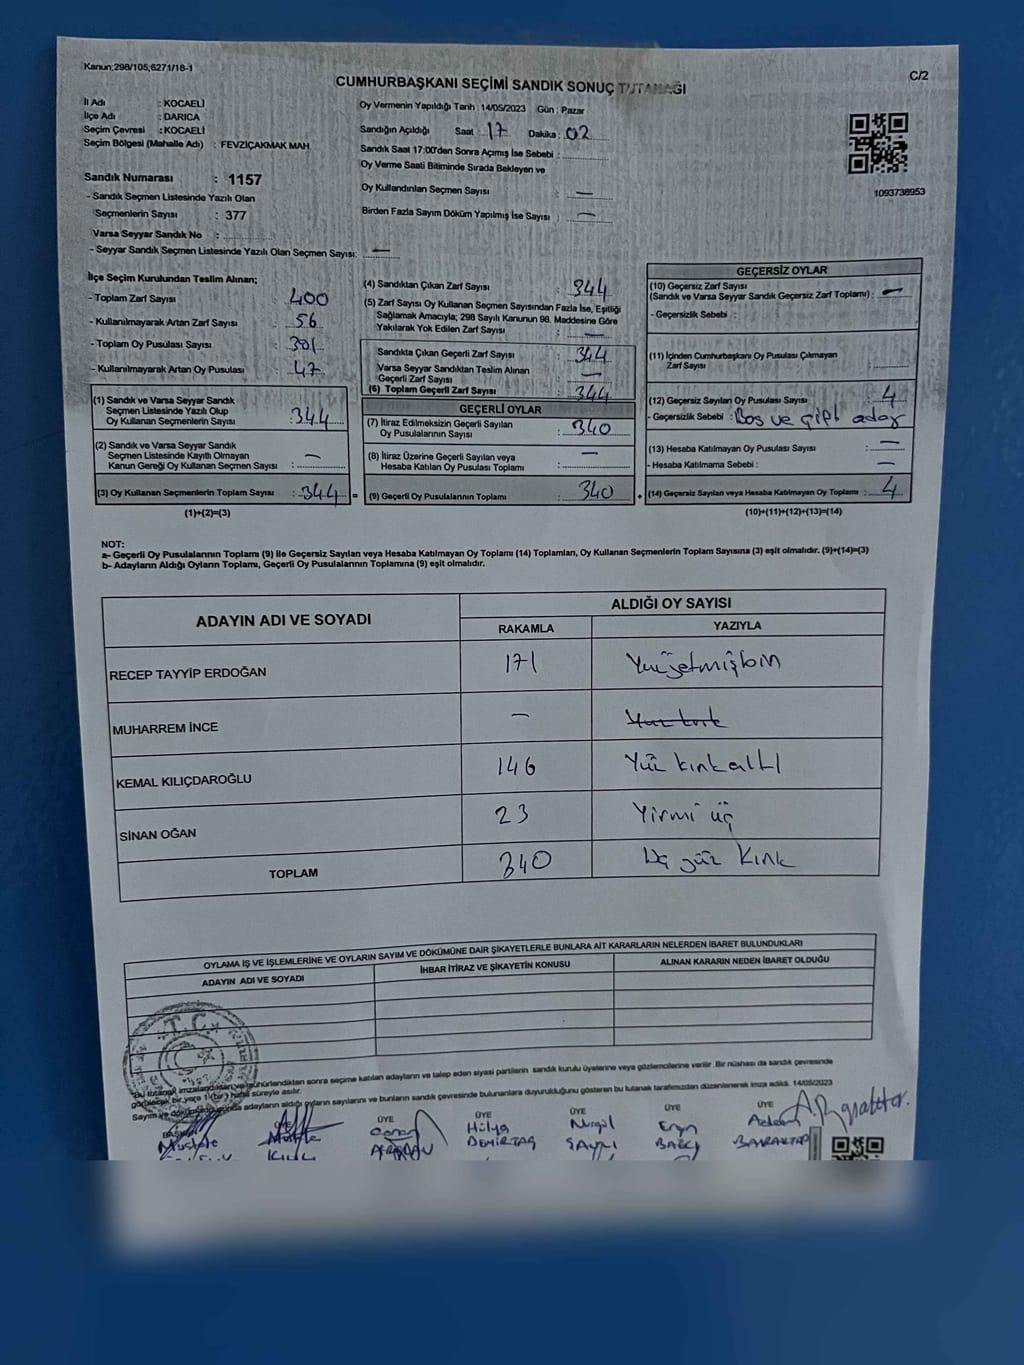 Kanun;298/105,6271/18-1
C/2
CUMHURBAŞKANI SEÇİMİ SANDIK SONUÇ TUTANAĞI
İl Adı : KOCAELİ
İlçe Adı : DARICA
Seçim Çevresi : KOCAELİ
Seçim Bölgesi (Mahalle Adı) : FEVZİÇAKMAK MAH.
Sandık Numarası : 1157
- Sandık Seçmen Listesinde Yazılı Olan
Seçmenlerin Sayısı : 377
Varsa Seyyar Sandık No :
- Seyyar Sandık Seçmen Listesinde Yazılı Olan Seçmen Sayısı: —
Oy Vermenin Yapıldığı Tarih : 14/05/2023 Gün : Pazar
Sandığın Açıldığı Saat : 17 Dakika : 02
Sandık Saat 17:00'den Sonra Açımış İse Sebebi :
Oy Verme Saati Bitiminde Sırada Bekleyen ve
Oy Kullandırılan Seçmen Sayısı : —
Birden Fazla Sayım Döküm Yapılmış İse Sayısı : —
1093738953
İlçe Seçim Kurulundan Teslim Alınan;
- Toplam Zarf Sayısı : 400
- Kullanılmayarak Artan Zarf Sayısı : 56
- Toplam Oy Pusulası Sayısı : 391
- Kullanılmayarak Artan Oy Pusulası : 47
(1) Sandık ve Varsa Seyyar Sandık
Seçmen Listesinde Yazılı Olup
Oy Kullanan Seçmenlerin Sayısı : 344
(2) Sandık ve Varsa Seyyar Sandık
Seçmen Listesinde Kayıtlı Olmayan
Kanun Gereği Oy Kullanan Seçmen Sayısı : —
(3) Oy Kullanan Seçmenlerin Toplam Sayısı : 344 =
(1)+(2)=(3)
(4) Sandıktan Çıkan Zarf Sayısı : 344
(5) Zarf Sayısı Oy Kullanan Seçmen Sayısından Fazla İse, Eşitliği
Sağlamak Amacıyla; 298 Sayılı Kanunun 98. Maddesine Göre
Yakılarak Yok Edilen Zarf Sayısı : —
Sandıkta Çıkan Geçerli Zarf Sayısı : 344
Varsa Seyyar Sandıktan Teslim Alınan
Geçerli Zarf Sayısı : —
(6) Toplam Geçerli Zarf Sayısı : 344
GEÇERLİ OYLAR
(7) İtiraz Edilmeksizin Geçerli Sayılan
Oy Pusulalarının Sayısı : 340
(8) İtiraz Üzerine Geçerli Sayılan veya
Hesaba Katılan Oy Pusulası Toplamı : —
(9) Geçerli Oy Pusulalarının Toplamı : 340 +
GEÇERSİZ OYLAR
(10) Geçersiz Zarf Sayısı
(Sandık ve Varsa Seyyar Sandık Geçersiz Zarf Toplamı) : —
- Geçersizlik Sebebi :
(11) İçinden Cumhurbaşkanı Oy Pusulası Çıkmayan
Zarf Sayısı :
(12) Geçersiz Sayılan Oy Pusulası Sayısı : 4
- Geçersizlik Sebebi : Boş ve çift aday
(13) Hesaba Katılmayan Oy Pusulası Sayısı : —
- Hesaba Katılmama Sebebi : —
(14) Geçersiz Sayılan veya Hesaba Katılmayan Oy Toplamı : 4
(10)+(11)+(12)+(13)=(14)
NOT:
a- Geçerli Oy Pusulalarının Toplamı (9) ile Geçersiz Sayılan veya Hesaba Katılmayan Oy Toplamı (14) Toplamları, Oy Kullanan Seçmenlerin Toplam Sayısına (3) eşit olmalıdır. (9)+(14)=(3)
b- Adayların Aldığı Oyların Toplamı, Geçerli Oy Pusulalarının Toplamına (9) eşit olmalıdır.
ADAYIN ADI VE SOYADI ALDIĞI OY SAYISI
RAKAMLA YAZIYLA
RECEP TAYYİP ERDOĞAN 171 Yüzyetmişbir
MUHARREM İNCE —
KEMAL KILIÇDAROĞLU 146 Yüz kırk altı
SİNAN OĞAN 23 Yirmi üç
TOPLAM 340 Üç yüz Kırk
OYLAMA İŞ VE İŞLEMLERİNE VE OYLARIN SAYIM VE DÖKÜMÜNE DAİR ŞİKAYETLERLE BUNLARA AİT KARARLARIN NELERDEN İBARET BULUNDUKLARI
ADAYIN ADI VE SOYADI İHBAR İTİRAZ VE ŞİKAYETİN KONUSU ALINAN KARARIN NEDEN İBARET OLDUĞU
T.C.
*Bu tutanak imzalandıktan ve mühürlendikten sonra seçime katılan adayların ve talep eden siyasi partilerin sandık kurulu üyelerine veya gözlemcilerine verilir. Bir nüshası da sandık çevresinde
görülecek bir yere 1(bir) hafta süreyle asılır.
Sayım ve dökümü sonunda adayların aldığı oyların sayılarını ve bunların sandık çevresinde bulunanlara duyurulduğunu gösteren bu tutanak tarafımızdan düzenlenerek imza edildi. 14/05/2023
BAŞKAN ÜYE ÜYE ÜYE ÜYE ÜYE
Mustafa Hülya Nurgül
DEMİRTAŞ SAYILI BAĞCI BAYRAKTAR